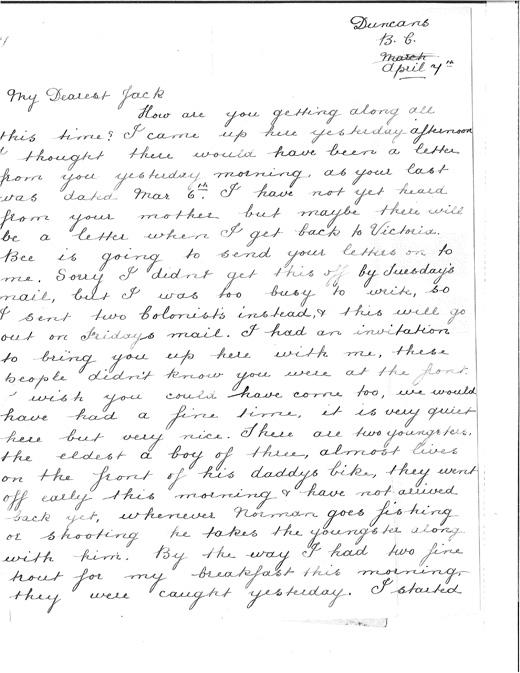 Duncans
B. C.
March
April 7th
My Dearest Jack
How are you getting along all
this time? I came up here yesterday afternoon
I thought there would have been a letter
from you yesterday morning, as your last
was dated Mar 6th. I have not yet heard
from your mother but maybe there will
be a letter when I get back to Victoria.
Bee is going to send your letters on to
me. Sorry I didn't get this off by Tuesday's
mail, but I was too busy to write, so
I sent two Colonists instead, & this will go
out on Fridays mail. I had an invitation
to bring you up here with me, these
people didn't know you were at the front.
I wish you could have come too, we would
have had a fine time, it is very quiet
here but very nice. There are two youngsters,
the eldest a boy of three, almost lives
on the front of his daddys bike, they went
off early this morning & have not arrived
back yet, whenever Norman goes fishing
or shooting he takes the youngster along
with him. By the way I had two fine
trout for my breakfast this morning,
they were caught yesterday. I started